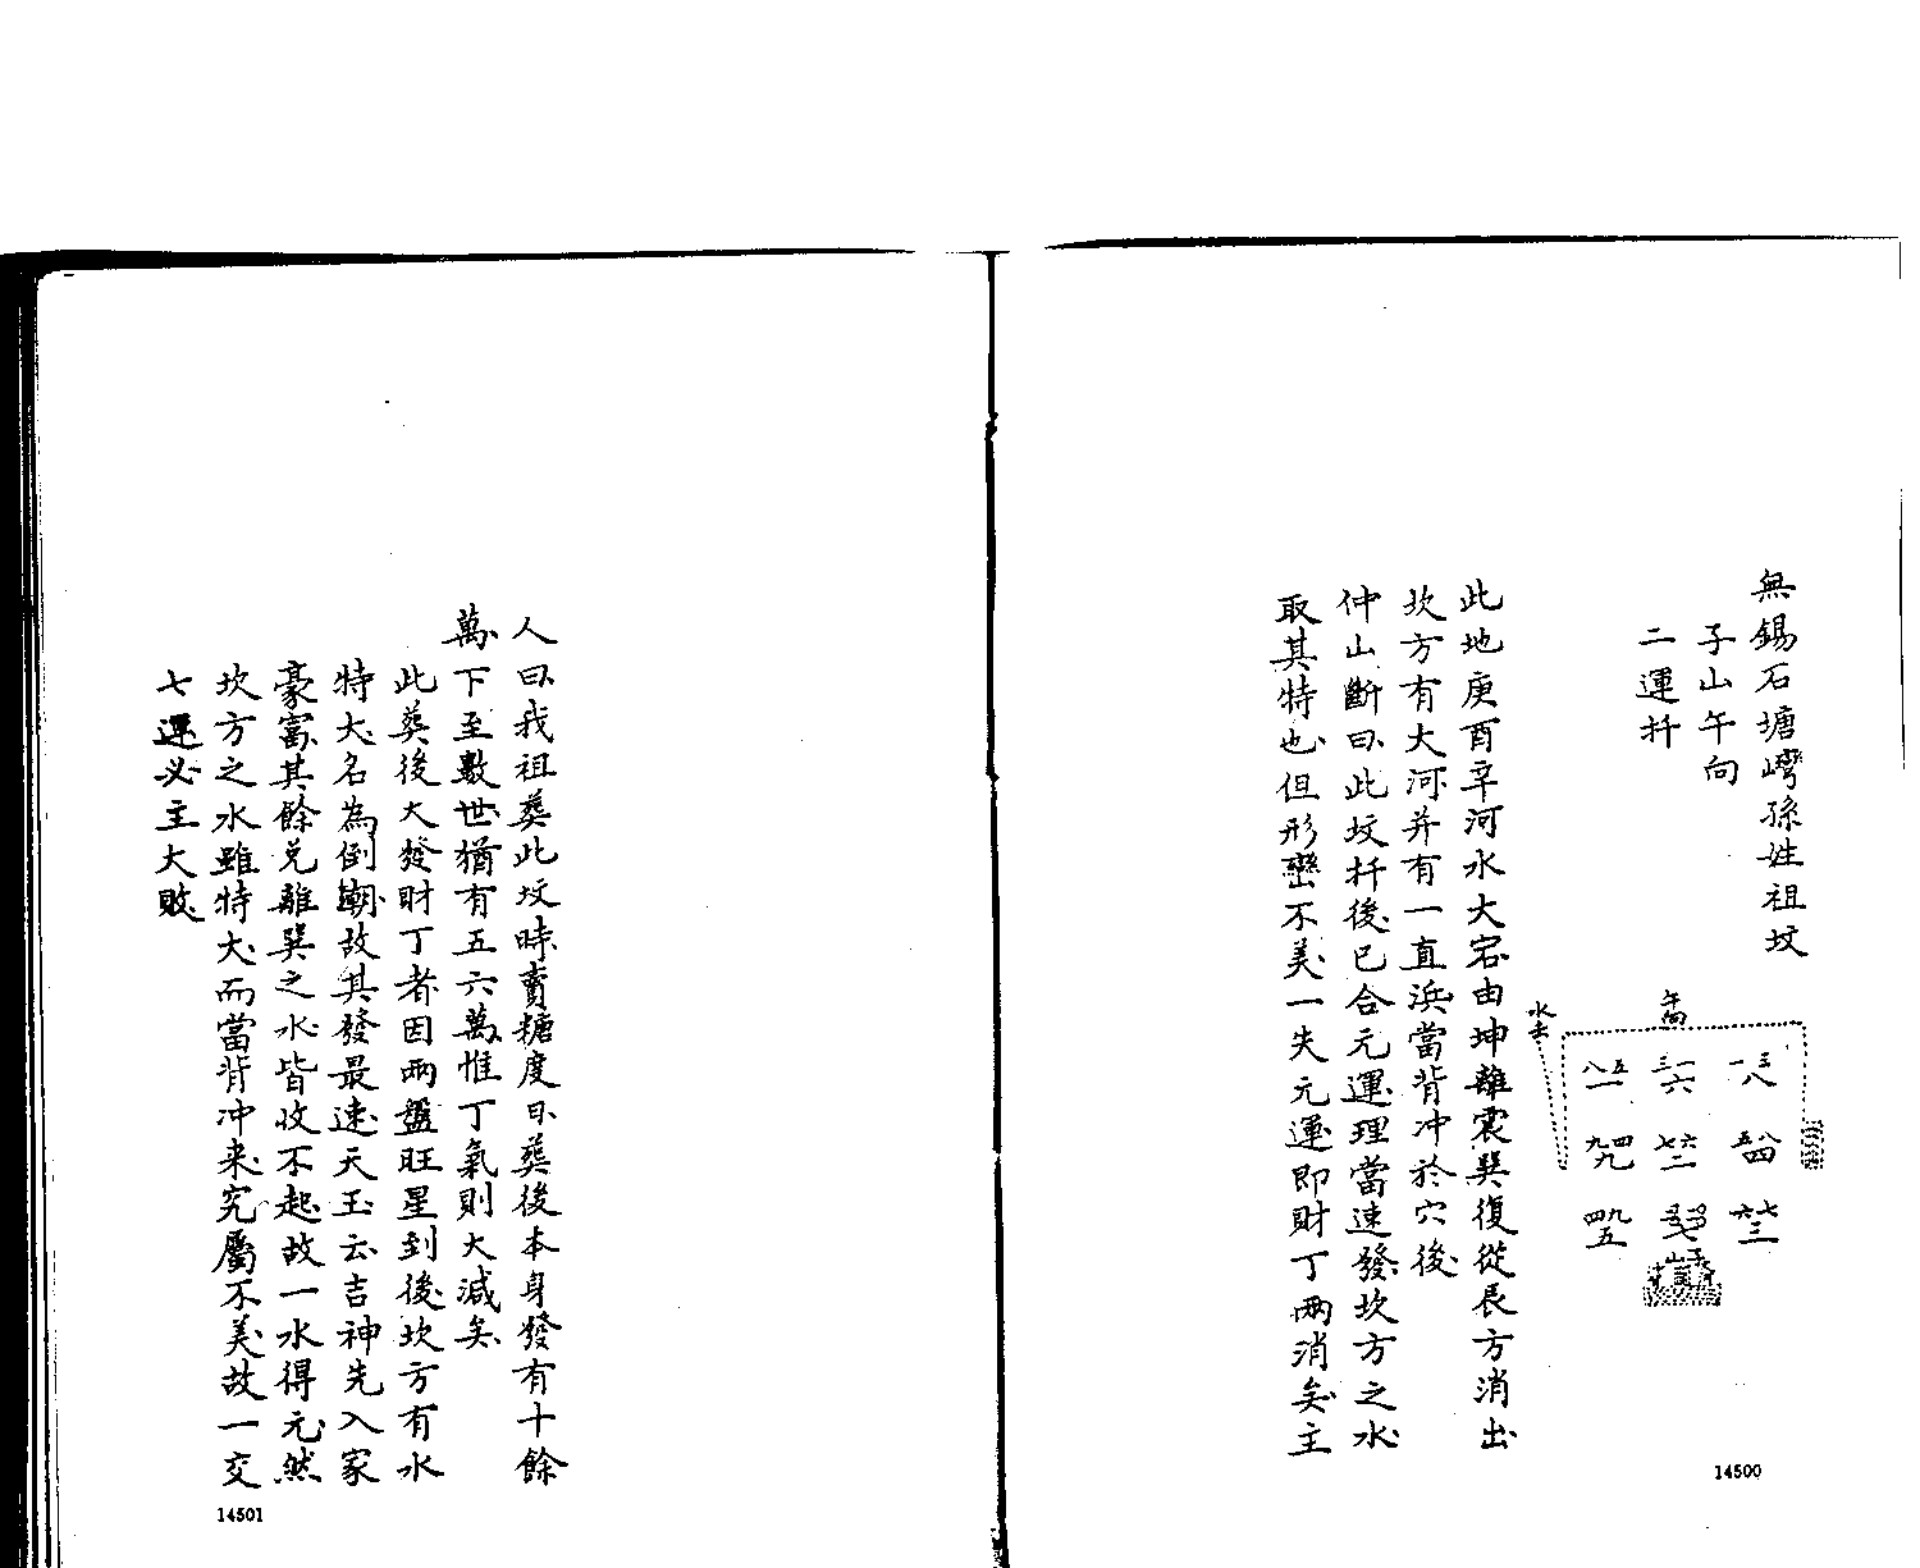 無錫石塘灣孫姓祖坟
子山午向
二運扦
午向
水去
一三 三一 八五
八 六 一
五八 七六 九四
四 二 九
六七 四九
三 七 五
子山
此地庚酉辛河水大宕由坤離震巽復從艮方消出
坎方有大河并有一直浜當背冲於穴後
仲山斷曰此坟扦後已合元運理當速發坎方之水
取其特也但形巒不美一失元運即財丁兩消矣主
14500
人曰我祖葬此坟時賣糖度日葬後本身發有十餘
萬下至數世猶有五六萬惟丁氣則大減矣
此葬後大發財丁者因兩盤旺星到後坎方有水
特大名為倒潮故其發最速天玉云吉神先入家
豪富其餘兌離巽之水皆收不起故一水得元然
坎方之水雖特大而當背冲来究屬不美故一交
七運必主大敗
14501